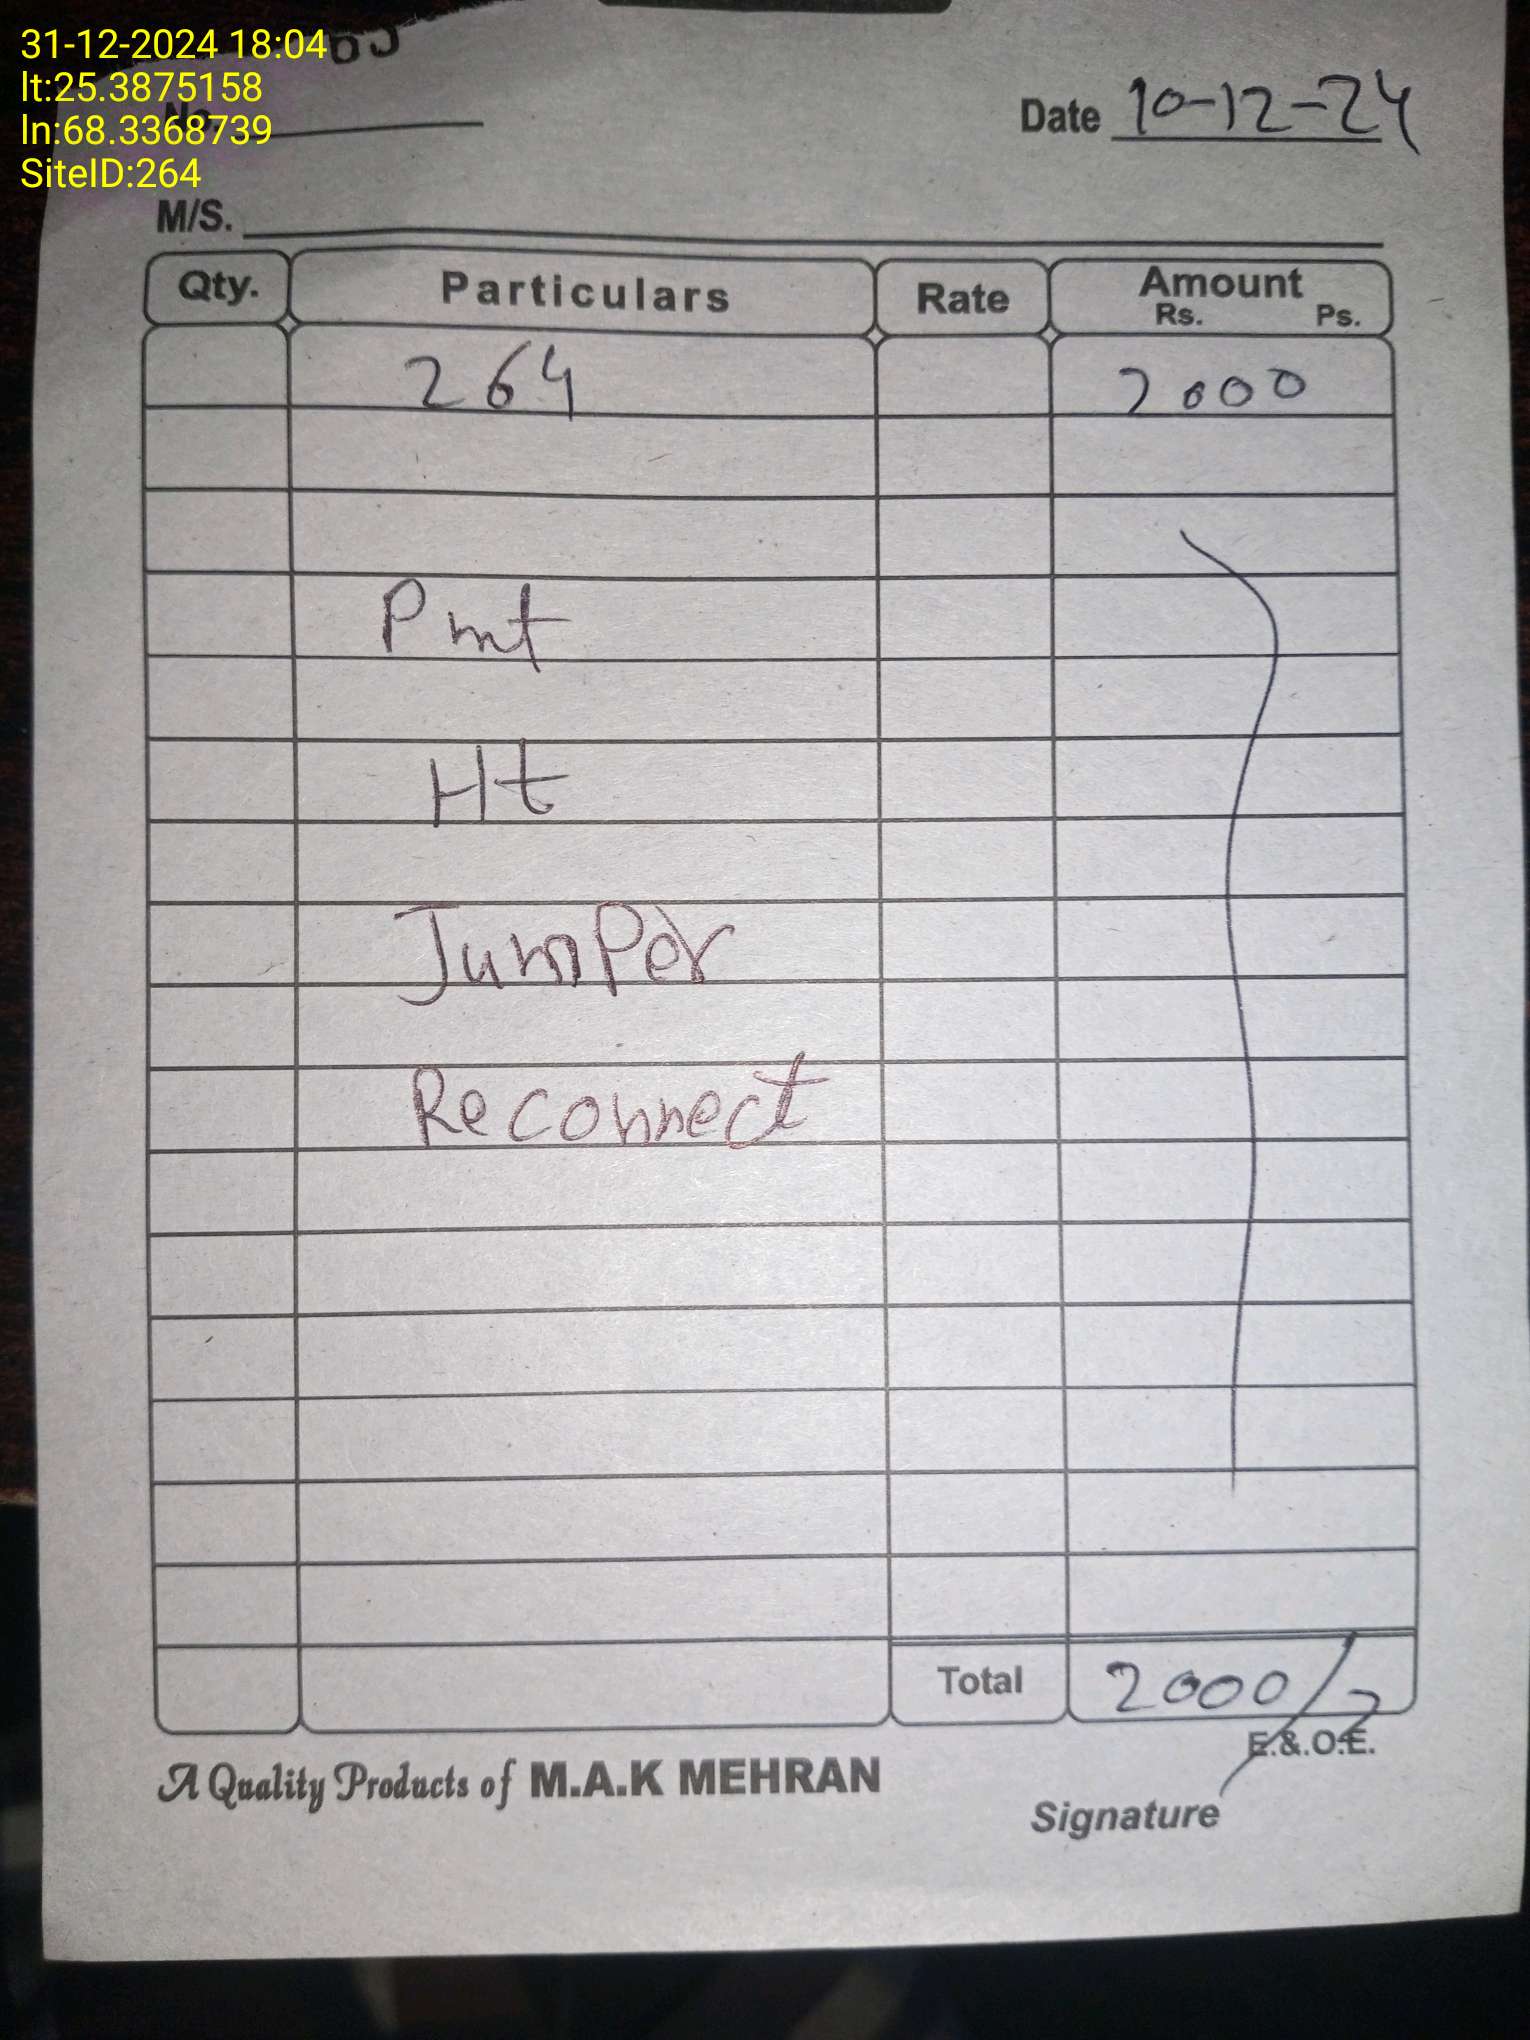 31-12-2024 18:04
lt:25.3875158
ln:68.3368739
SiteID:264
No.
Date 10-12-24
M/S.
Qty. Particulars Rate Amount
Rs. Ps.
264 2000
Pmt
Ht
Jumper
Reconnect
Total 2000/
E.&.O.E.
A Quality Products of M.A.K MEHRAN
Signature